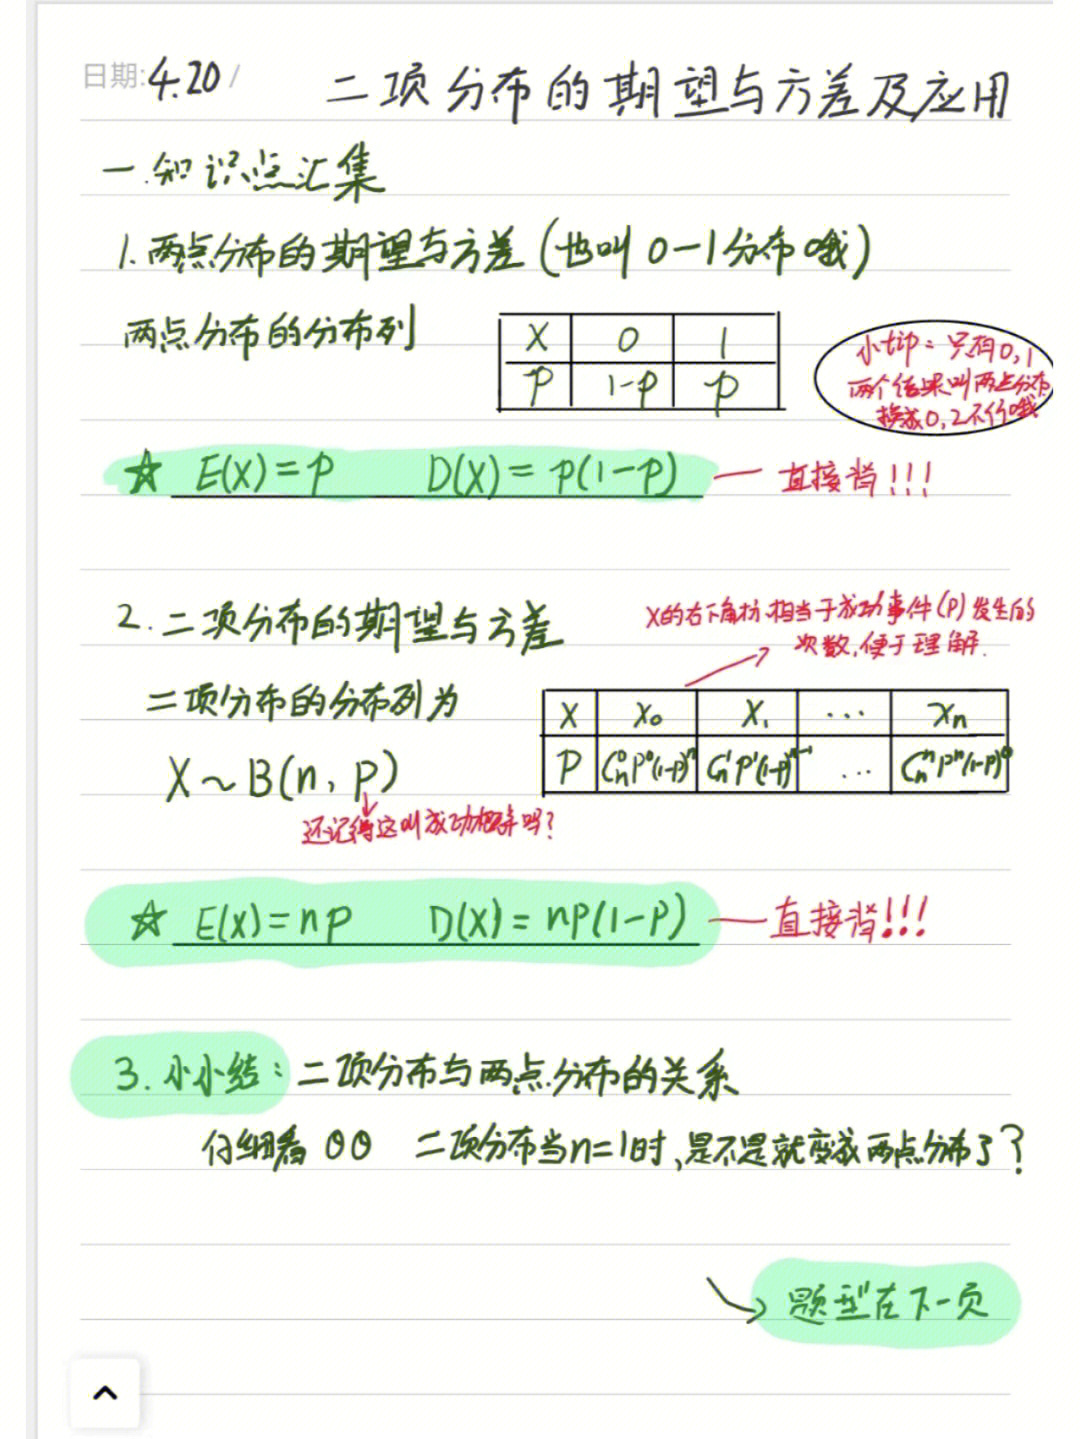 日期:4.20/
二项分布的期望与方差及应用
一.知识点汇集
1.两点分布的期望与方差(也叫0-1分布哦)
两点分布的分布列
X 0 1
P 1-p p
小tip:只有0,1
两个结果叫两点分布
换成0,2不行哦
☆ E(X)=p D(X)=p(1-p) — 直接背!!!
2.二项分布的期望与方差
X的右下角标,相当于成功事件(P)发生的
次数,便于理解.
二项分布的分布列为
X x₀ X₁ ... xₙ
P Cₙ⁰P⁰(1-p)ⁿ Cₙ¹P¹(1-p)ⁿ⁻¹ ... CₙⁿPⁿ(1-p)⁰
X~B(n,p)
还记得这叫成功概率吗?
☆ E(X)=np D(X)=np(1-p) — 直接背!!!
3.小小结:二项分布与两点分布的关系
仔细看 二项分布当n=1时,是不是就变成两点分布了?
题型在下一页